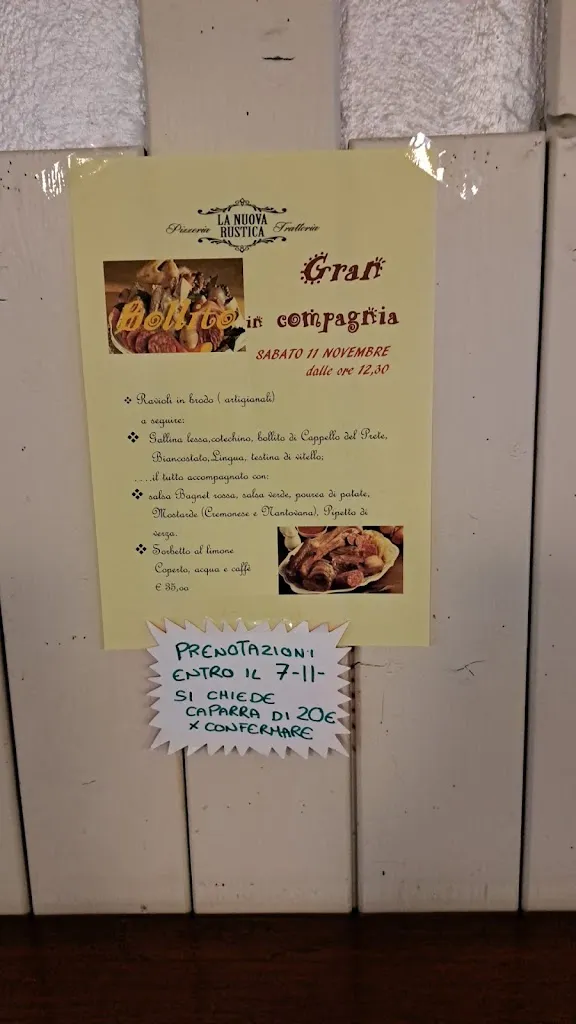 Pizzeria LA NUOVA RUSTICA Trattoria
Gran
Bollito in compagnia
SABATO 11 NOVEMBRE
dalle ore 12,30
Ravioli in brodo ( artigianali)
a seguire:
Gallina lessa,cotechino, bollito di Cappello del Prete,
Biancostato,Lingua, testina di vitello;
....il tutto accompagnato con:
salsa Bagnet rossa, salsa verde, pourea di patate,
Mostarde (Cremonese e Mantovana), Pipetto di
verza.
Sorbetto al limone
Coperto, acqua e caffè
€ 35,00
PRENOTAZIONI
ENTRO IL 7-11-
SI CHIEDE
CAPARRA DI 20€
X CONFERMARE